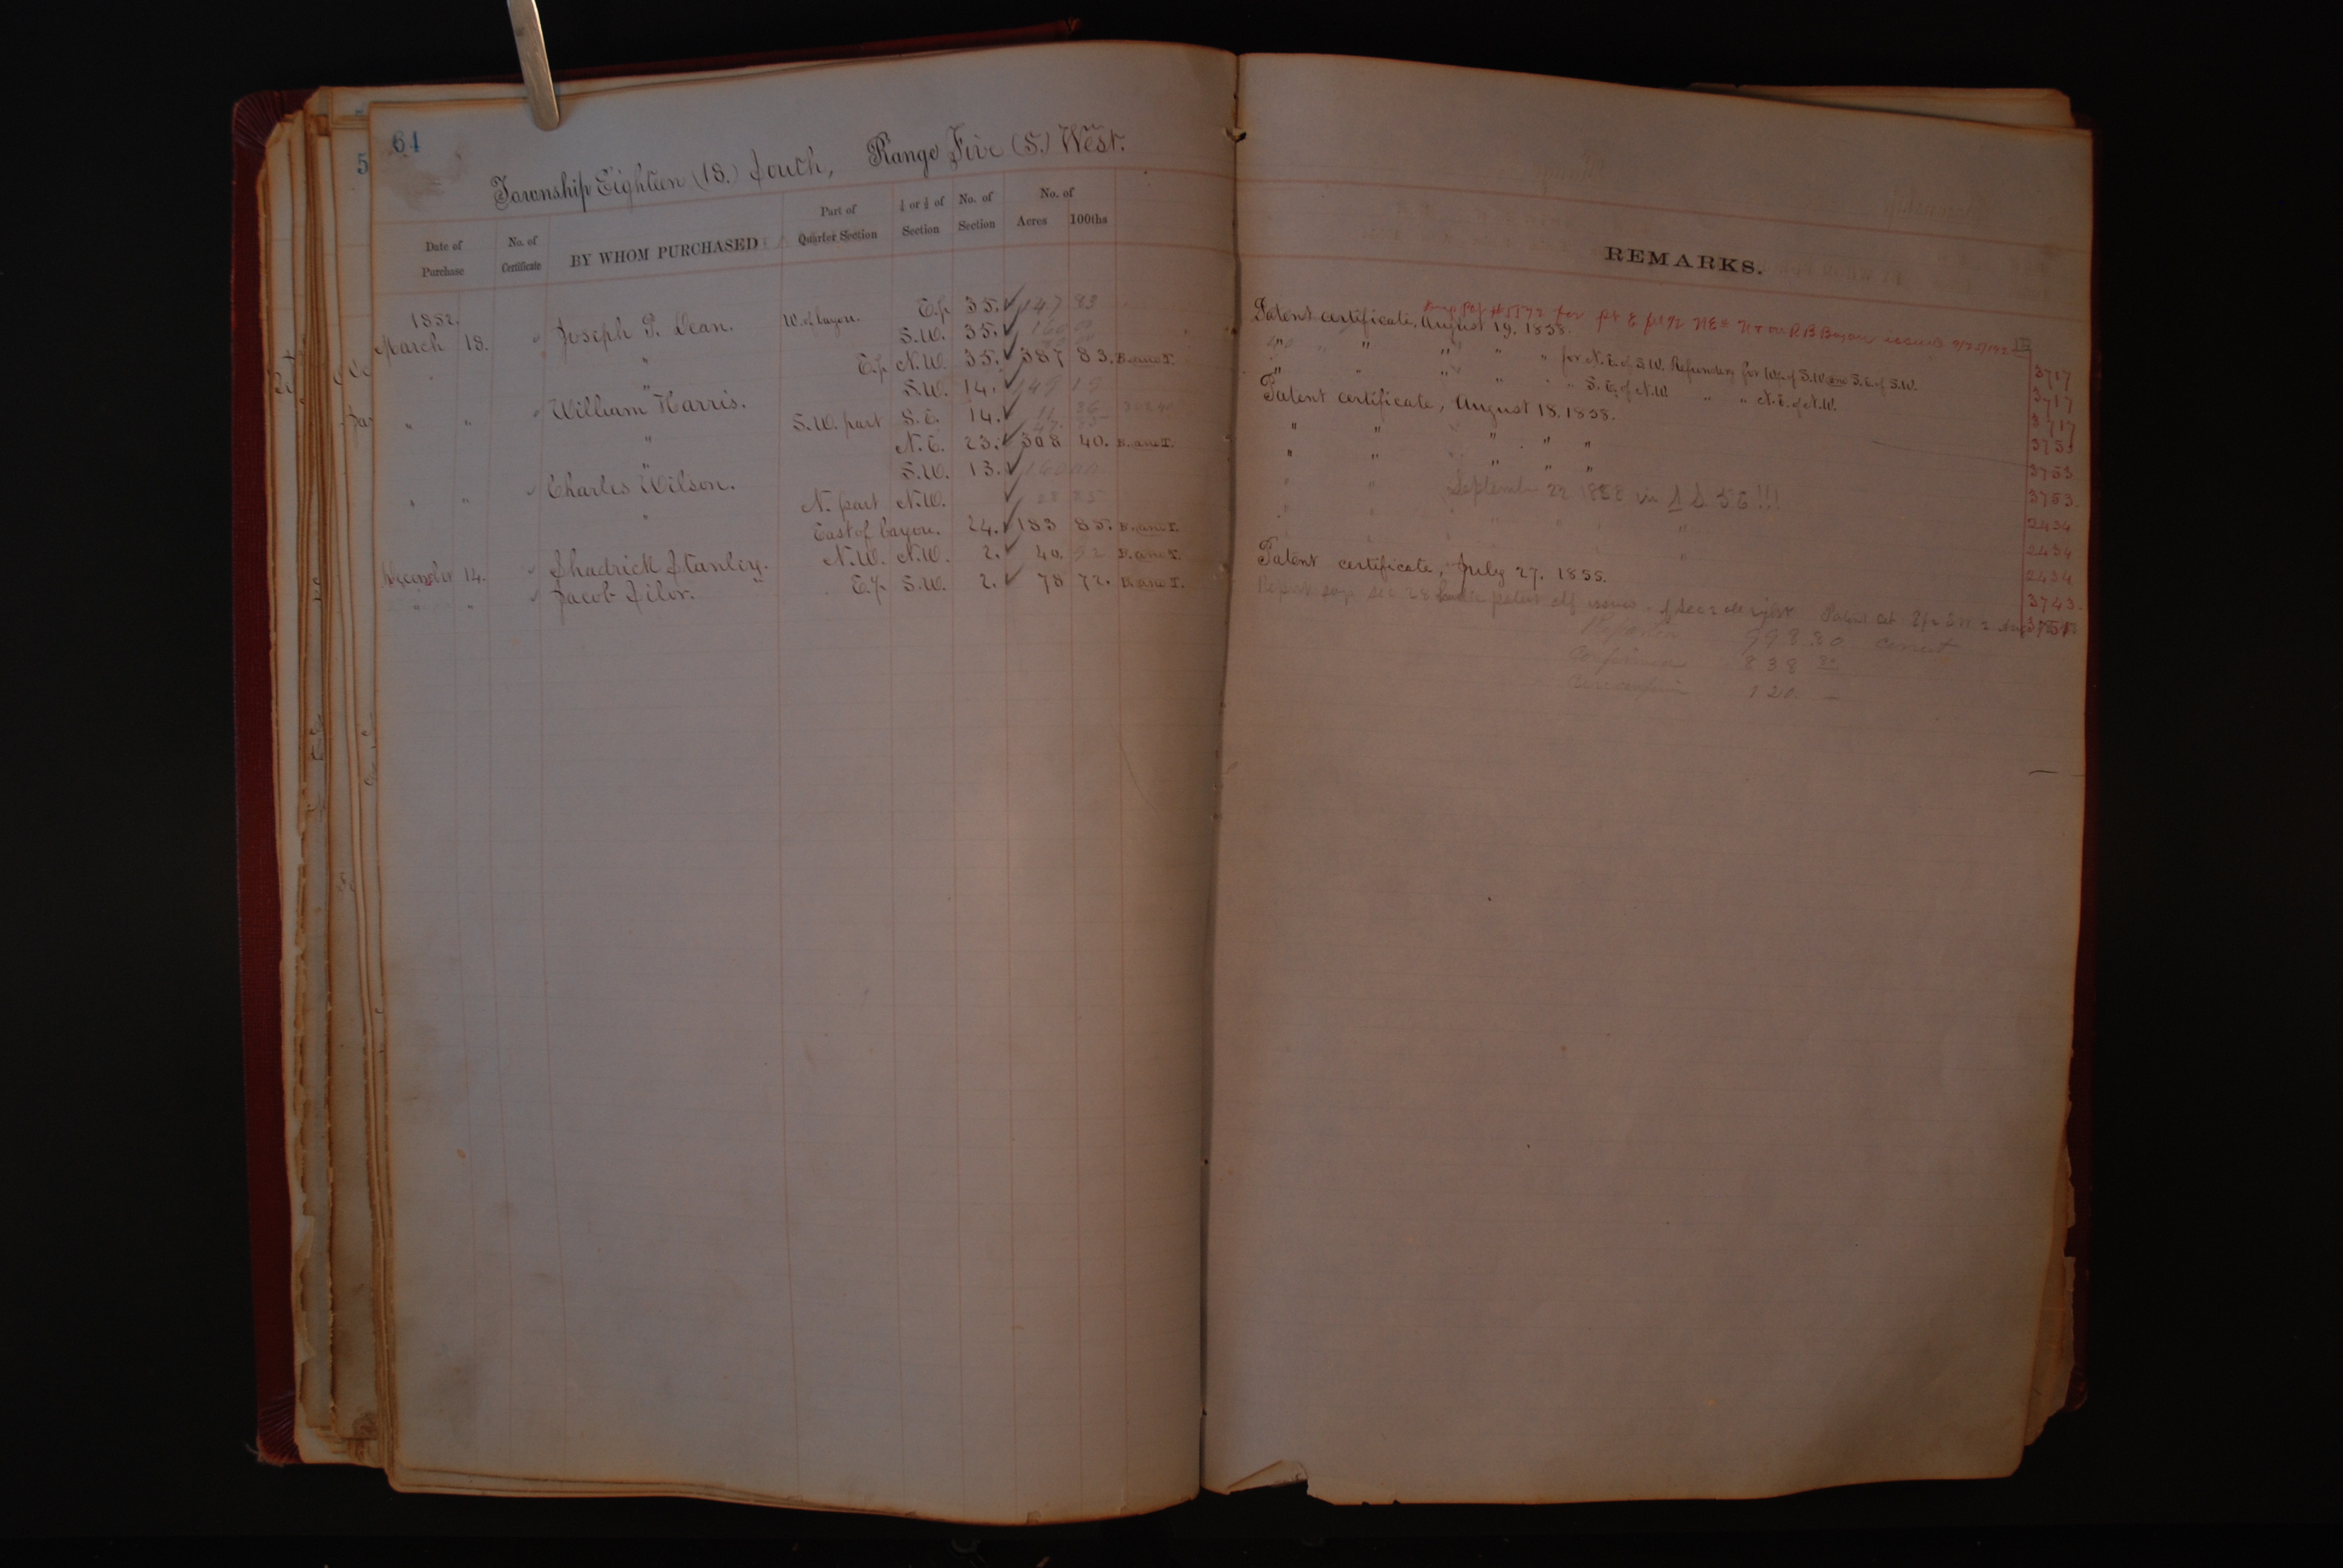 64
Township Eighteen (18.) South, Range Five (5.) West.
Date of Purchase No. of Certificate BY WHOM PURCHASED Part of Quarter Section ¼ or ½ of Section No. of Section No. of Acres 100ths
REMARKS.
1852.
March 18. Joseph P. Dean. W. of bayou. E.½ 35. 147 83 Patent certificate, August 19, 1858.
" S.W. 35. 160 00 " " " " " for N.E. of S.W. Refunding for W.½ of S.W. and S.E. of S.W. 3717
" E.½ N.W. 35. 387 83. B. and T. " " " " " S.E. of N.W. " " N.E. of N.W. 3717
" " William Harris. S.W. 14. 149 Patent certificate, August 18, 1858. 3717
" S.W. part S.E. 14. " " " " " 3753
" N.E. 23. 308 40. B. and T. " " " " " 3753
" " Charles Wilson. S.W. 13. 160 00 " " September 22 1858 in 3753.
" N. part N.W. 28 85 2434
East of bayou. 24. 183 85. B. and T. 2434
December 14. Shadrick Stanley. N.W. N.W. 2. 40. 52 B. and T. Patent certificate, July 27, 1855. 2434
" " Jacob E.½ S.W. 2. 78 72. B. and T. 3743.
998.80 correct
838 80
120. —